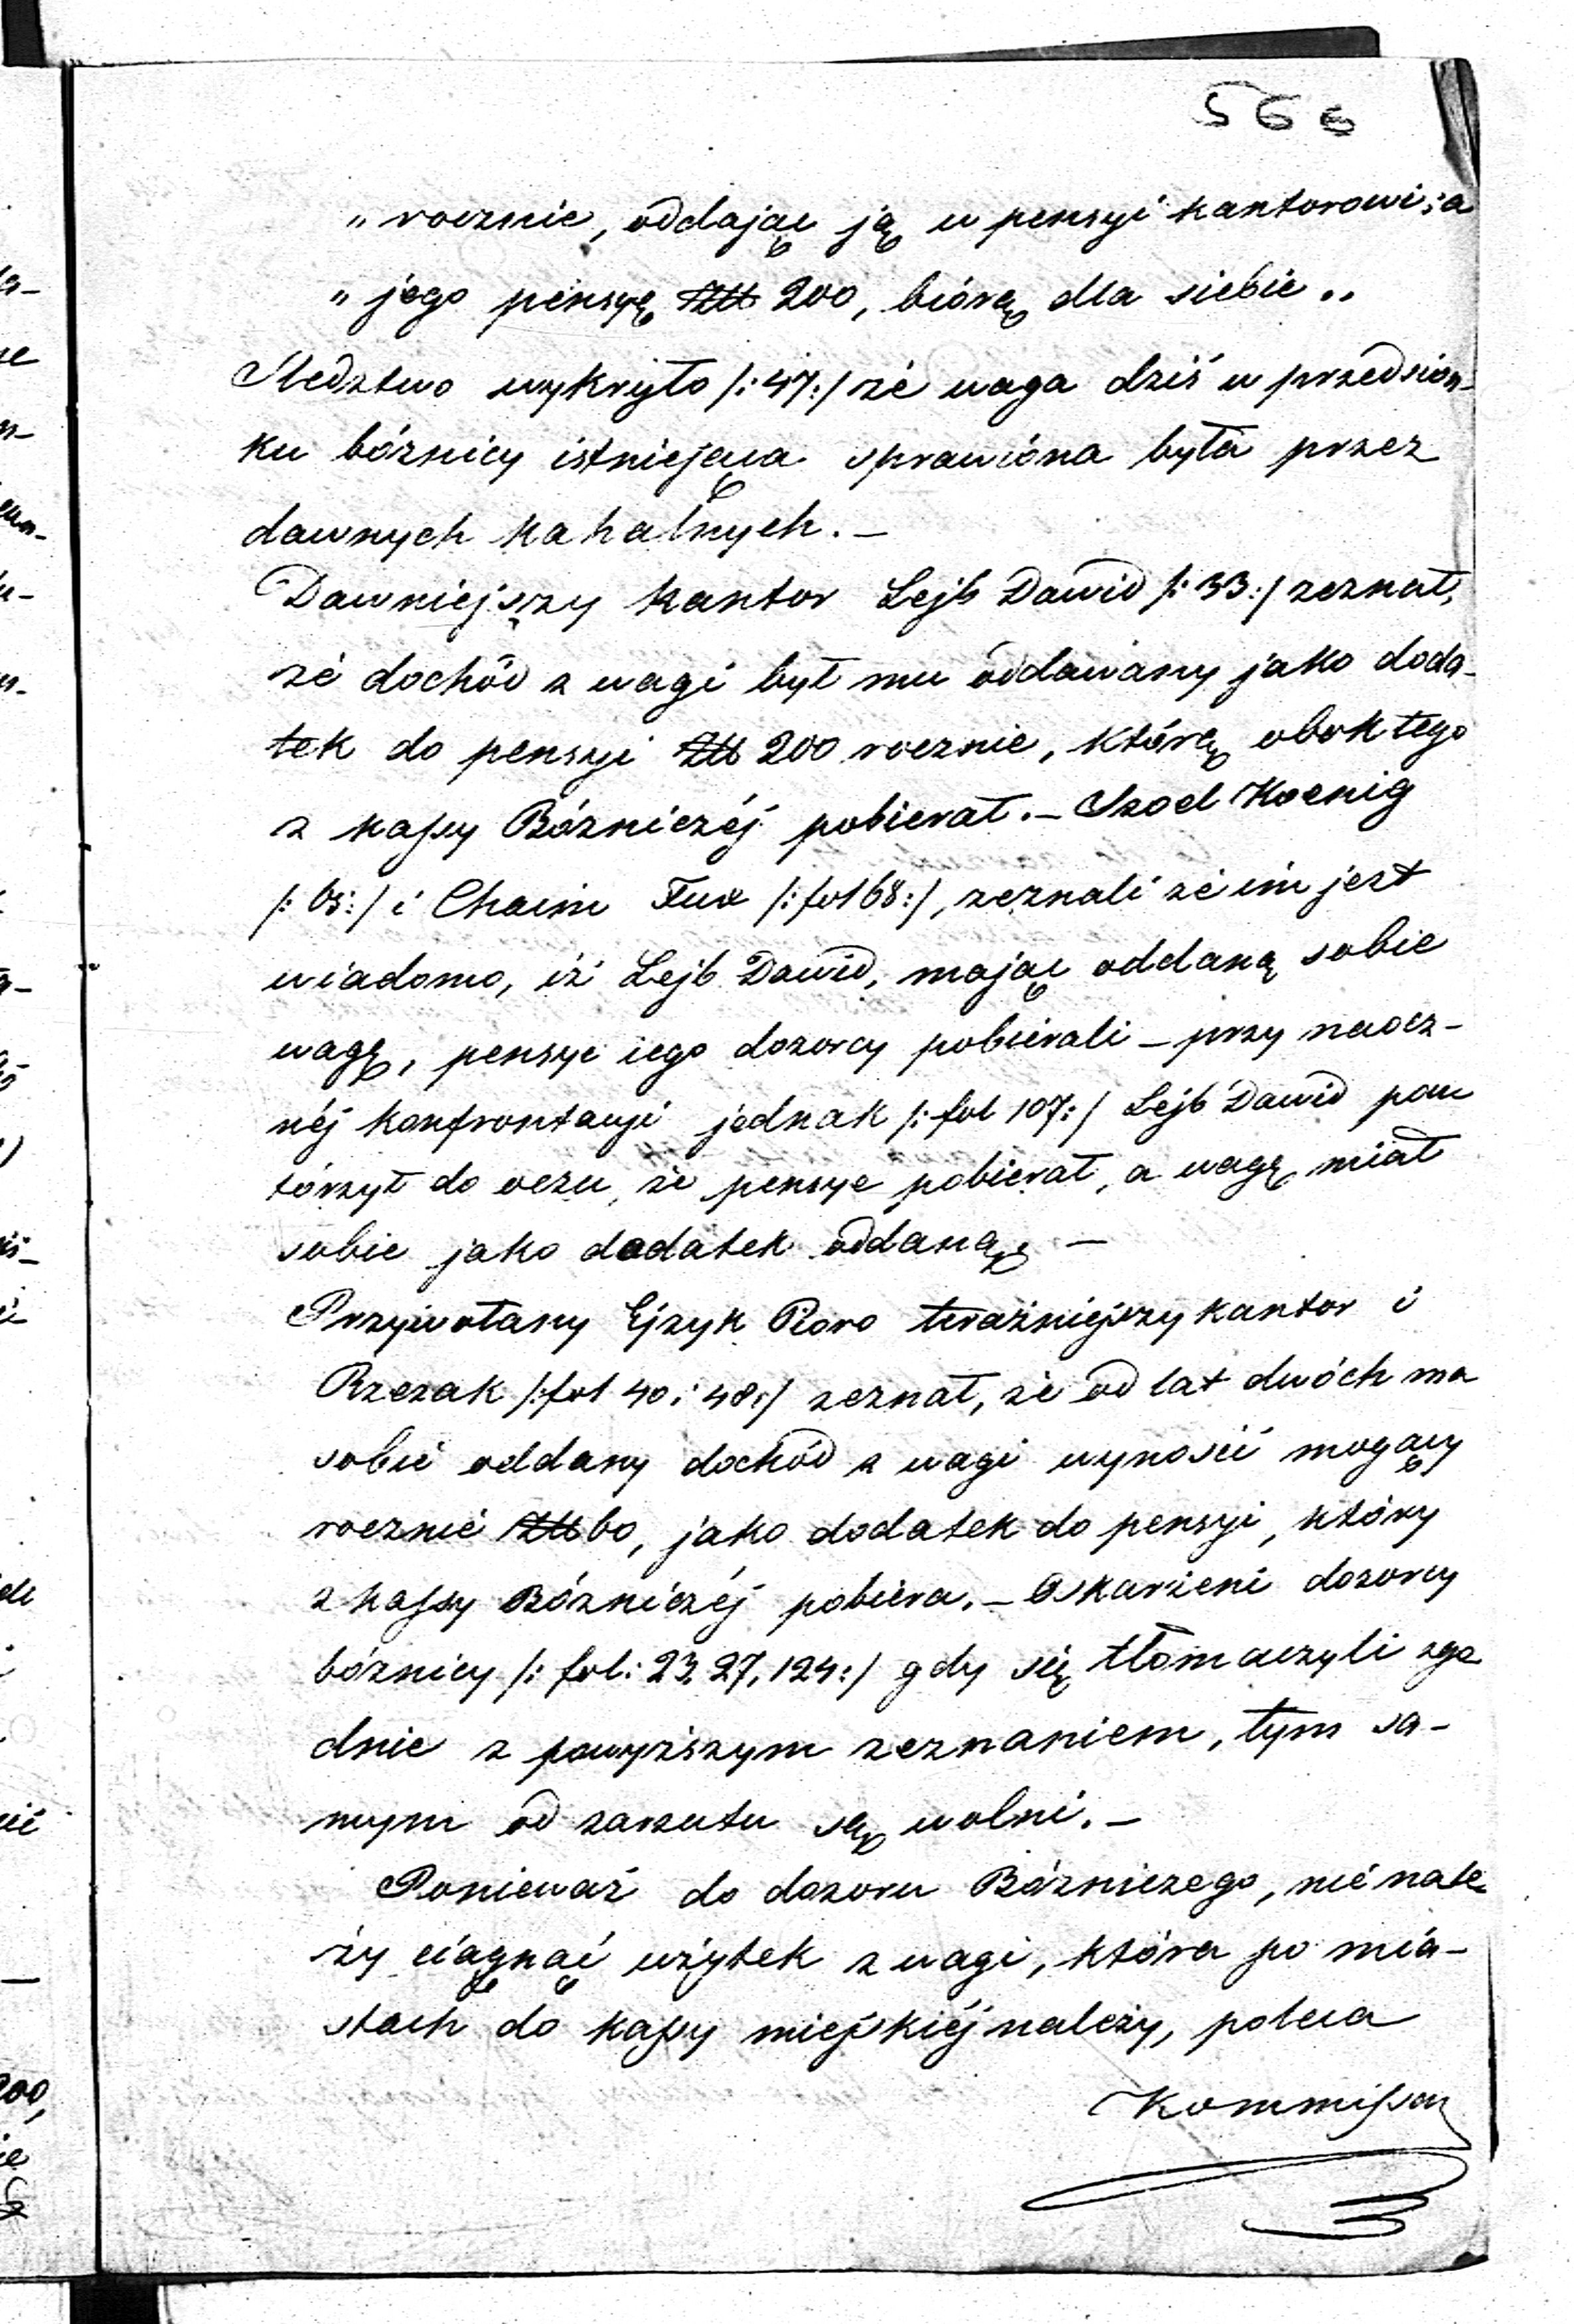 566
„rocznie, oddając ją w pensyi kantorowi, a
„jego pensyę Złt 200, biorą dla siebie „
Sledztwo wykryło /:47:/ że waga dziś w przedsion-
ku bóżnicy istniejąca sprawiona była przez
dawnych kahalnych. –
Dawniejszy kantor Lejb Dawid /:33:/ zeznał,
że dochód z wagi był mu oddawany jako doda-
tek do pensyi Złt 200 rocznie, którą obok tego
z kassy Bóżniczéj pobierał. – Koenig
/:65:/ i Chaim Fux /:fol 68:/, zeznali że im jest
wiadomo, iż Lejb Dawid, mając oddaną sobie
wagę, pensye iego dozorcy pobierali – przy naocz-
néj konfrontacyi jednak /:fol 107:/ Lejb Dawid pow
tórzył do oczu, że pensye pobierał, a wagę miał
sobie jako dodatek oddaną. –
Przywołany Ejzyk Pioro teraźniejszy kantor i
Rzezak /:fol 40 i 48:/ zeznał, że od lat dwóch ma
sobie oddany dochód z wagi wynosić mogący
rocznie Złt 60, jako dodatek do pensyi, który
z kassy Bóżniczéj pobiera. – Oskarżeni dozorcy
bóżnicy /:fol: 23, 27, 124:/ gdy się tłomaczyli zgo
dnie z powyższym zeznaniem, tym sa-
mym od zarzutu są wolni. –
Ponieważ do dozoru Bóżniczego, nie nale-
ży ciągnąć użytek z wagi, która po mia-
stach do kassy miejskiéj należy, poleca
Kommissar